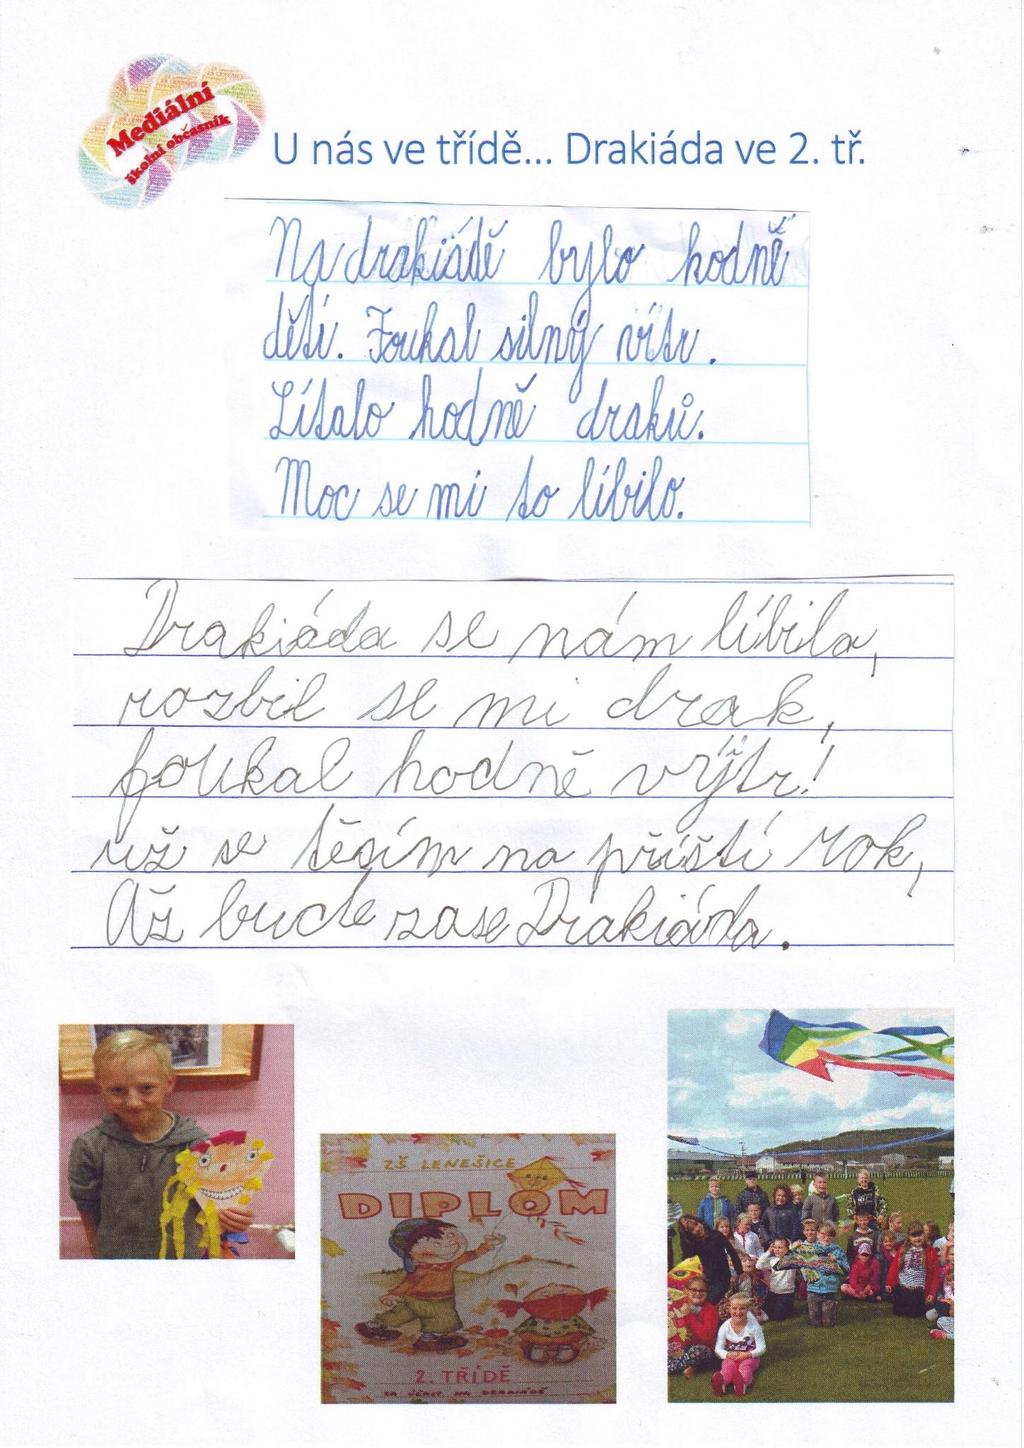 Mediální
školní občasník
U nás ve třídě... Drakiáda ve 2. tř.
Na drakiádě bylo hodně
dětí. Foukal silný vítr.
Lítalo hodně draků.
Moc se mi to líbilo.
Drakiáda se nám líbila,
rozbil se mi drak,
foukal hodně výtr!
už se těsím na příští rok,
Až bude zase Drakiáda.
ZŠ LENEŠICE
DIPLOM
2. TŘÍDĚ
ZA ÚČAST NA DRAKIÁDĚ